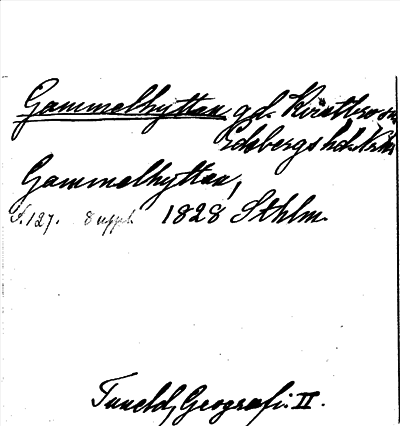 Gammelhyttan, gd. Kvistbro sn,
Edsbergs hd. Nrke
Gammelhyttan,
S. 127. 8 uppl. 1828 Sthlm.
Tuneld, Geografi. II.